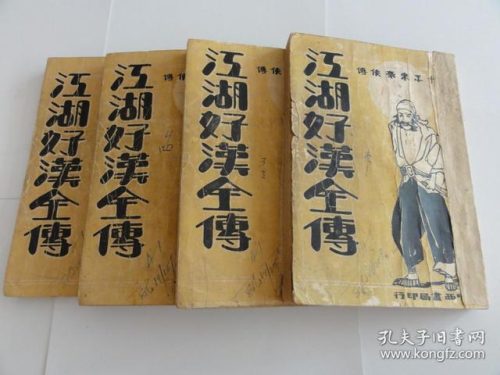 江湖好漢全傳
俠傳
江湖好漢全傳
俠傳
江湖好漢全傳
豪俠傳
江湖好漢全傳
西書局印行
孔夫子旧书网
www.kongfz.com